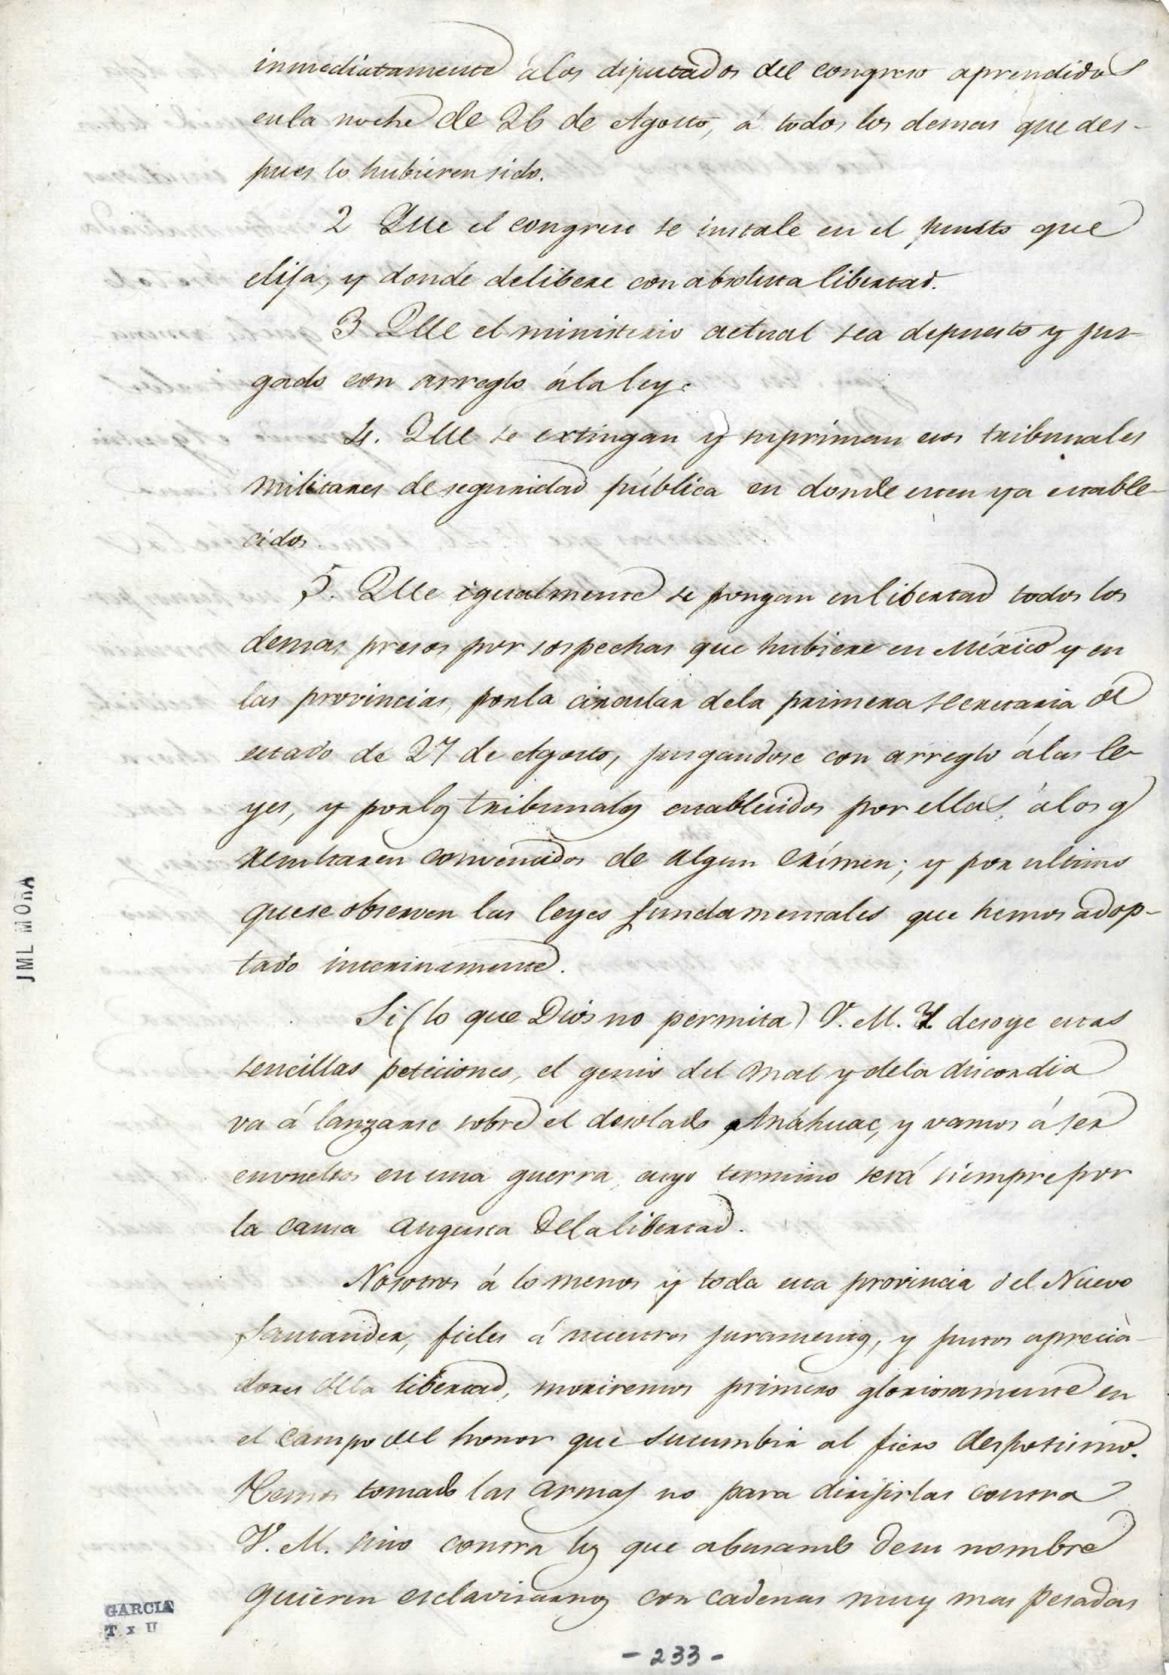 inmediatamente á los diputados del congreso aprendidos
en la noche de 26 de Agosto, á todos los demas que des-
pues lo hubieren sido.
2 Que el congreso se instale en el punto que
elija, y donde delibere con absoluta libertad.
3 Que el ministerio actual sea depuesto y juz-
gado con arreglo á la ley.
4. Que se extingan y supriman esos tribunales
militares de seguridad pública en donde esten ya estable-
cidos.
5. Que igualmente se pongan en libertad todos los
demas presos por sospechas que hubiere en México y en
las provincias, por la circular de la primera secretaria de
estado de 27 de Agosto, jusgandose con arreglo á las le-
yes, y por los tribunales establecidos por ellas, á los q
resultaren convencidos de algun crímen; y por ultimo
que se observen las leyes fundamentales que hemos adop-
tado interinamente.
Si (lo que Dios no permita) V. M. I. desoye estas
sencillas peticiones, el genio del mal y de la discordia
va á lanzarse sobre el desolado Anáhuac, y vamos á ser
envueltos en una guerra, cuyo termino será siempre por
la causa augusta de la libertad.
Nosotros á lo menos y toda esta provincia del Nuevo
Santander, fieles á nuestros juramentos, y justos aprecia-
dores de la libertad, moriremos primero gloriosamente en
el campo del honor que sucumbir al fiero despotismo.
Hemos tomado las armas no para dirijirlas contra
V. M. sino contra los que abusando de su nombre
quieren esclavisarnos con cadenas muy mas pesadas
- 233 -
JML MORA
GARCIA
T x U